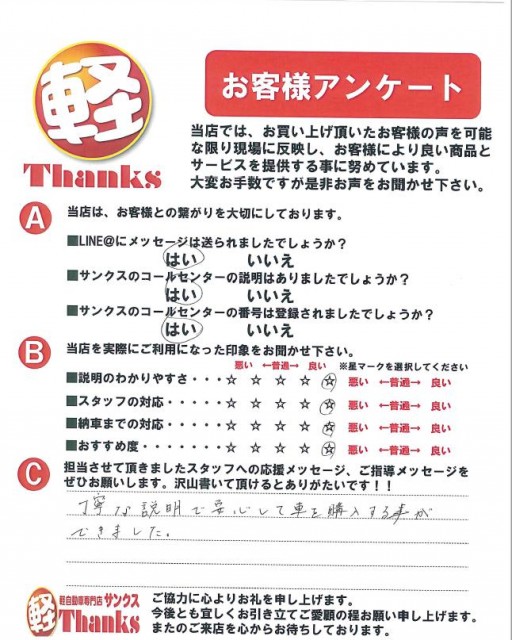 軽
Thanks
お客様アンケート
当店では、お買い上げ頂いたお客様の声を可能
な限り現場に反映し、お客様により良い商品と
サービスを提供する事に努めています。
大変お手数ですが是非お声をお聞かせ下さい。
A 当店は、お客様との繋がりを大切にしております。
■LINE@にメッセージは送られましたでしょうか？
はい いいえ
■サンクスのコールセンターの説明はありましたでしょうか？
はい いいえ
■サンクスのコールセンターの番号は登録されましたでしょうか？
はい いいえ
B 当店を実際にご利用になった印象をお聞かせ下さい。
悪い ←普通→ 良い ※星マークを選択してください
■説明のわかりやすさ・・・☆ ☆ ☆ ☆ ☆ 悪い ←普通→ 良い
■スタッフの対応・・・・・☆ ☆ ☆ ☆ ☆ 悪い ←普通→ 良い
■納車までの対応・・・・・☆ ☆ ☆ ☆ ☆ 悪い ←普通→ 良い
■おすすめ度・・・・・・・☆ ☆ ☆ ☆ ☆ 悪い ←普通→ 良い
C 担当させて頂きましたスタッフへの応援メッセージ、ご指導メッセージを
ぜひお願いします。沢山書いて頂けるとありがたいです！！
丁寧な説明で安心して車を購入する事が
できました。
軽 軽自動車専門店 サンクス
Thanks
ご協力に心よりお礼を申し上げます。
今後とも宜しくお引き立てご愛顧の程お願い申し上げます。
またのご来店を心からお待ちしております。